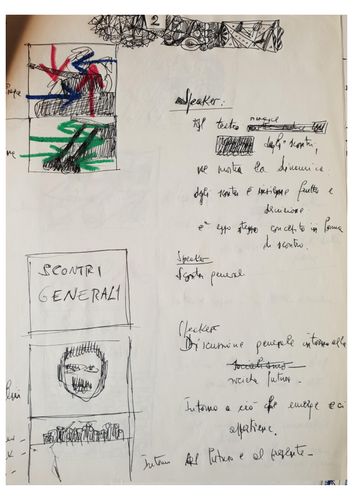 2
Speaker:
Il teatro nasce
dagli scontri
ne mostra la dinamica
degli scontri è insieme frutto e
direzione
è esso stesso concepito in forma
di scontro.
SCONTRI
GENERALI
Speaker
Scontri generali
Speaker
Discussione generale intorno alla
società futura.
Intorno a ciò che emerge e ci
appartiene.
Intorno al futuro e al presente.